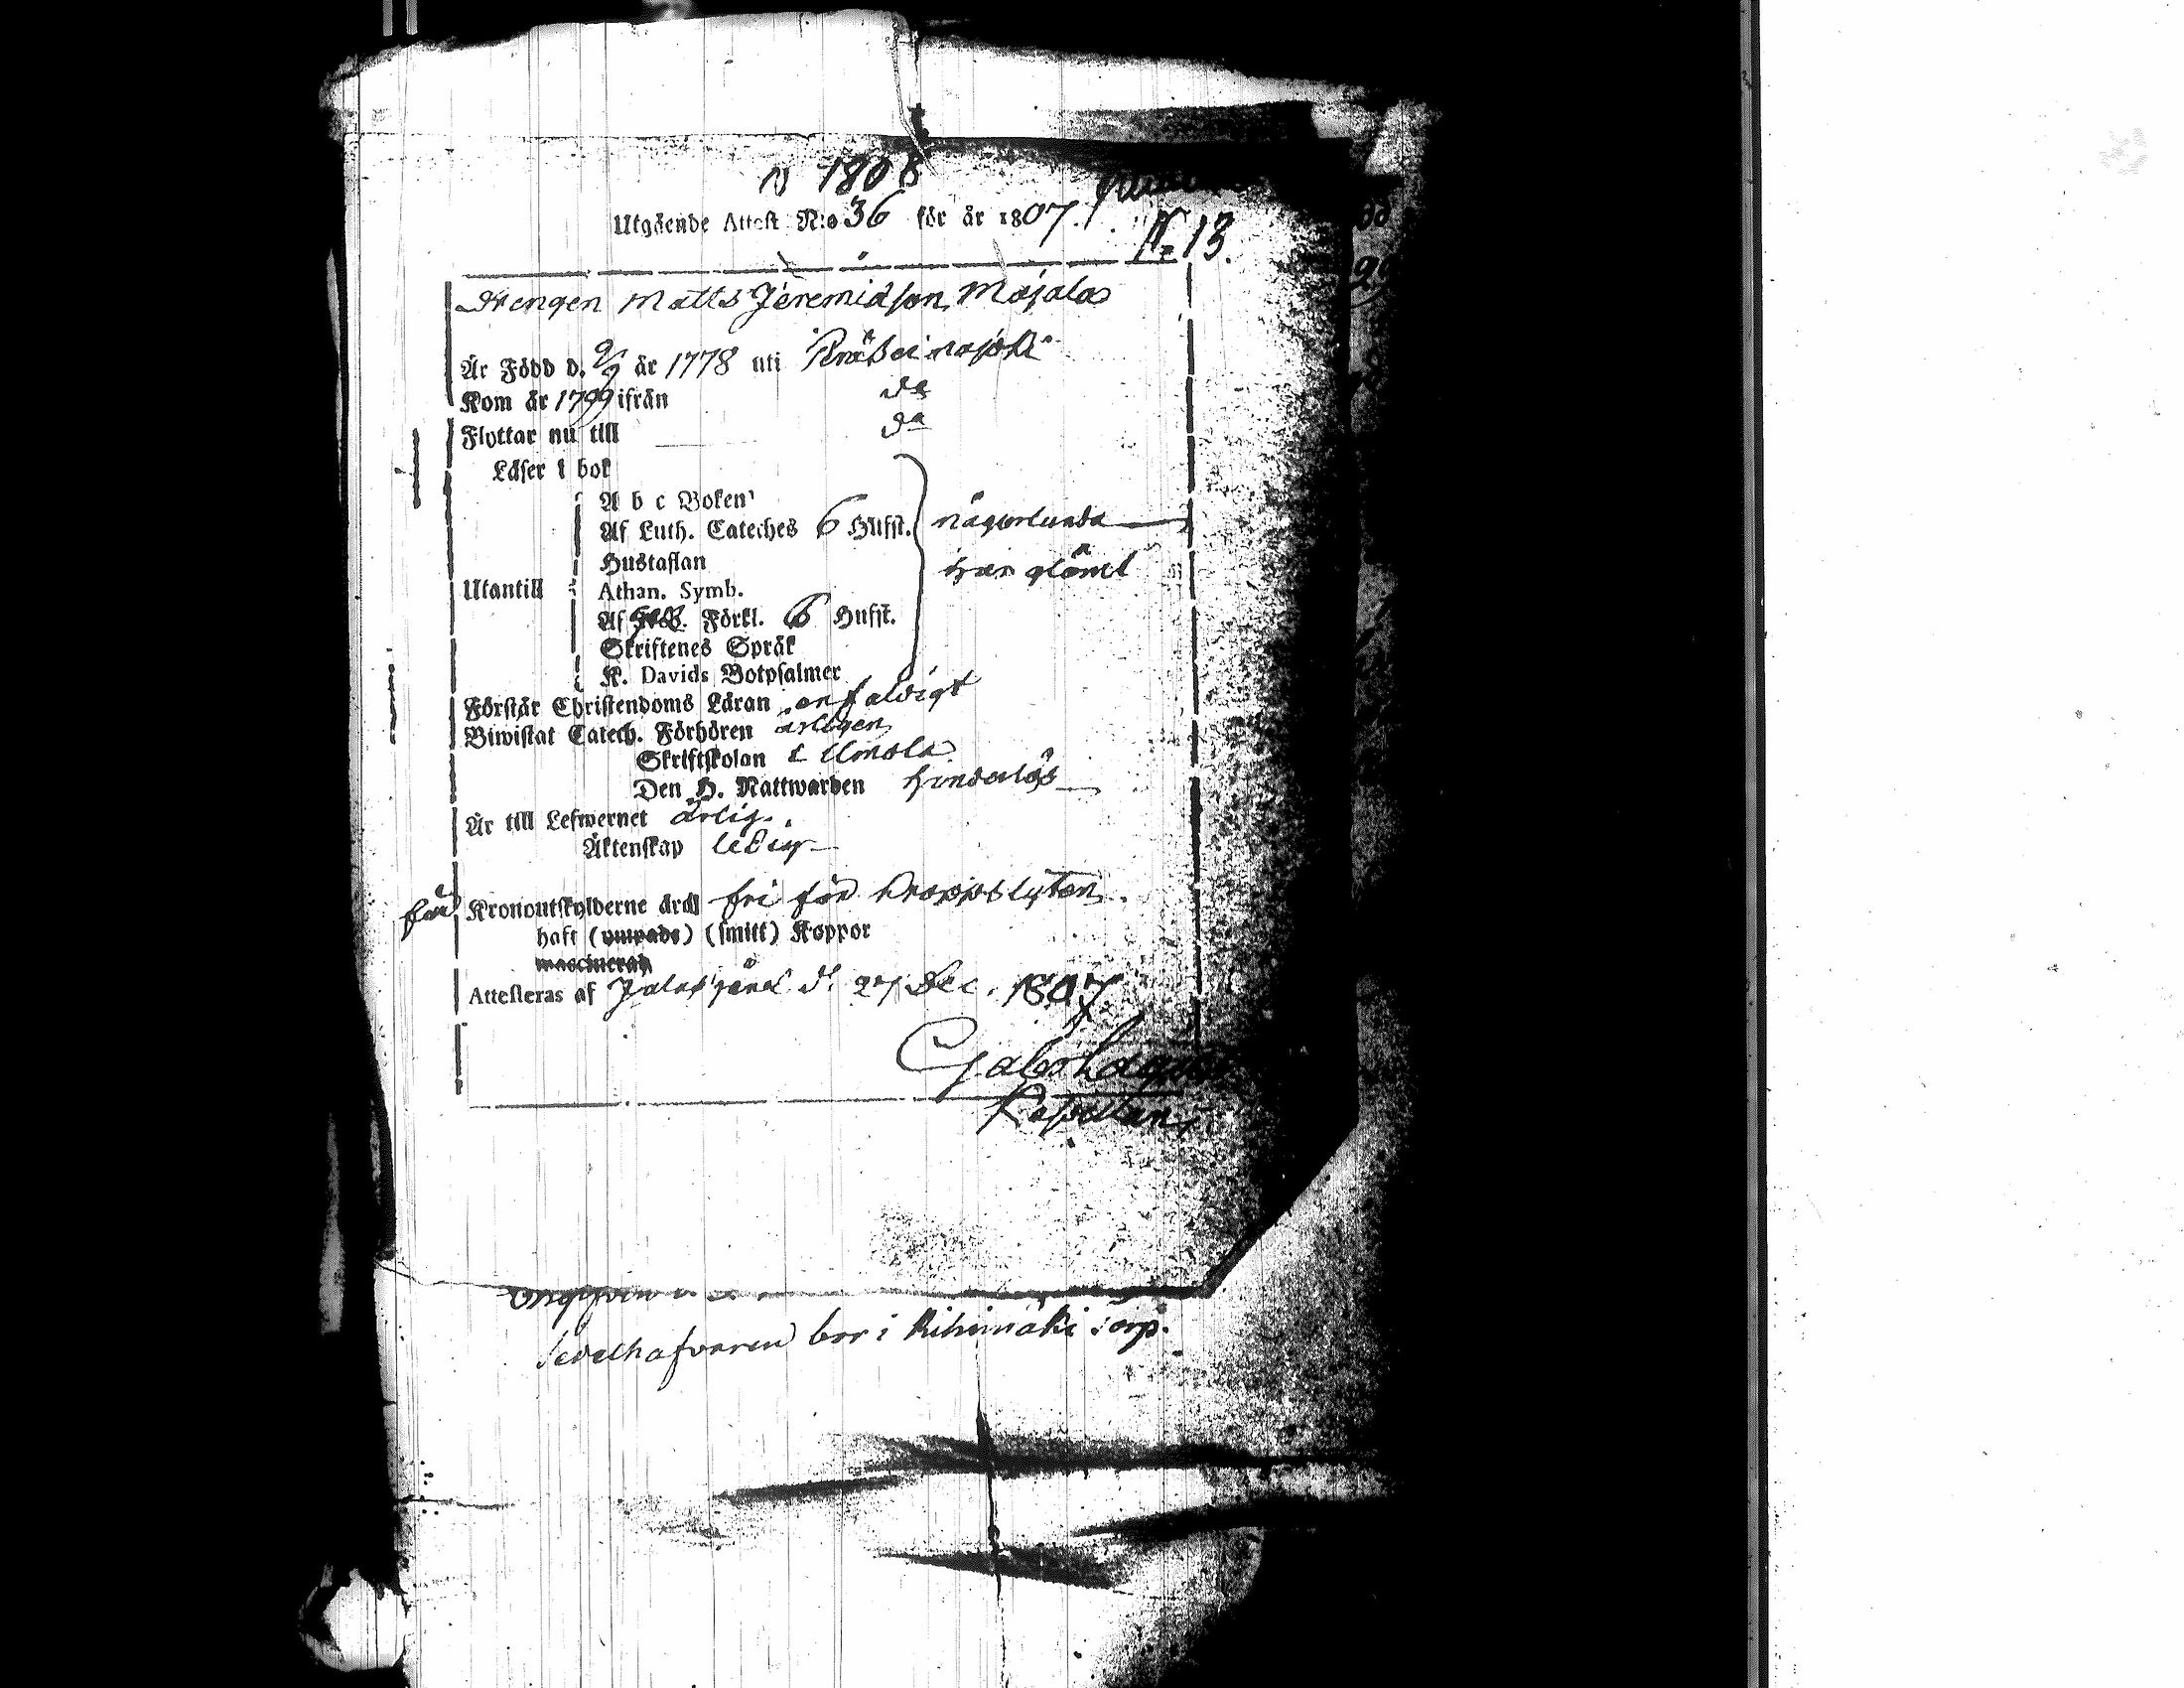 1808
Utgående Attest N:o 36 för år 1807.
N 13.
Drengen Matts Jeremiason Majalas
Är Född d. 9/9 år 1778 uti Peräseinäjoki
Kom år 1799 ifrån do
Flyttar nu till do
Läser i bok
A b c Boken
Af Luth. Cateches 6 Hufst. någorlunda
Hustaflan har glömt
Utantill Athan. Symb.
Af Förkl. 6 Hufst.
Skriftenes Språk
K. Davids Botpsalmer
Förstår Christendoms Läran enfaldigt
Biwistat Catech. Förhören årligen
Skriftskolan i Ilmola
Den H. Nattwarden hinderlös
Är till Lefwernet ärlig.
Äktenskap ledig
för Kronoutskylderne ärdl fri för kroppslyten.
haft (smitt) Koppor
Attesteras af Jalasjärvi d. 27 Dec. 1807
Gabr
Kapellan.
Sedelhafvaren bor i Rihimäki torp.